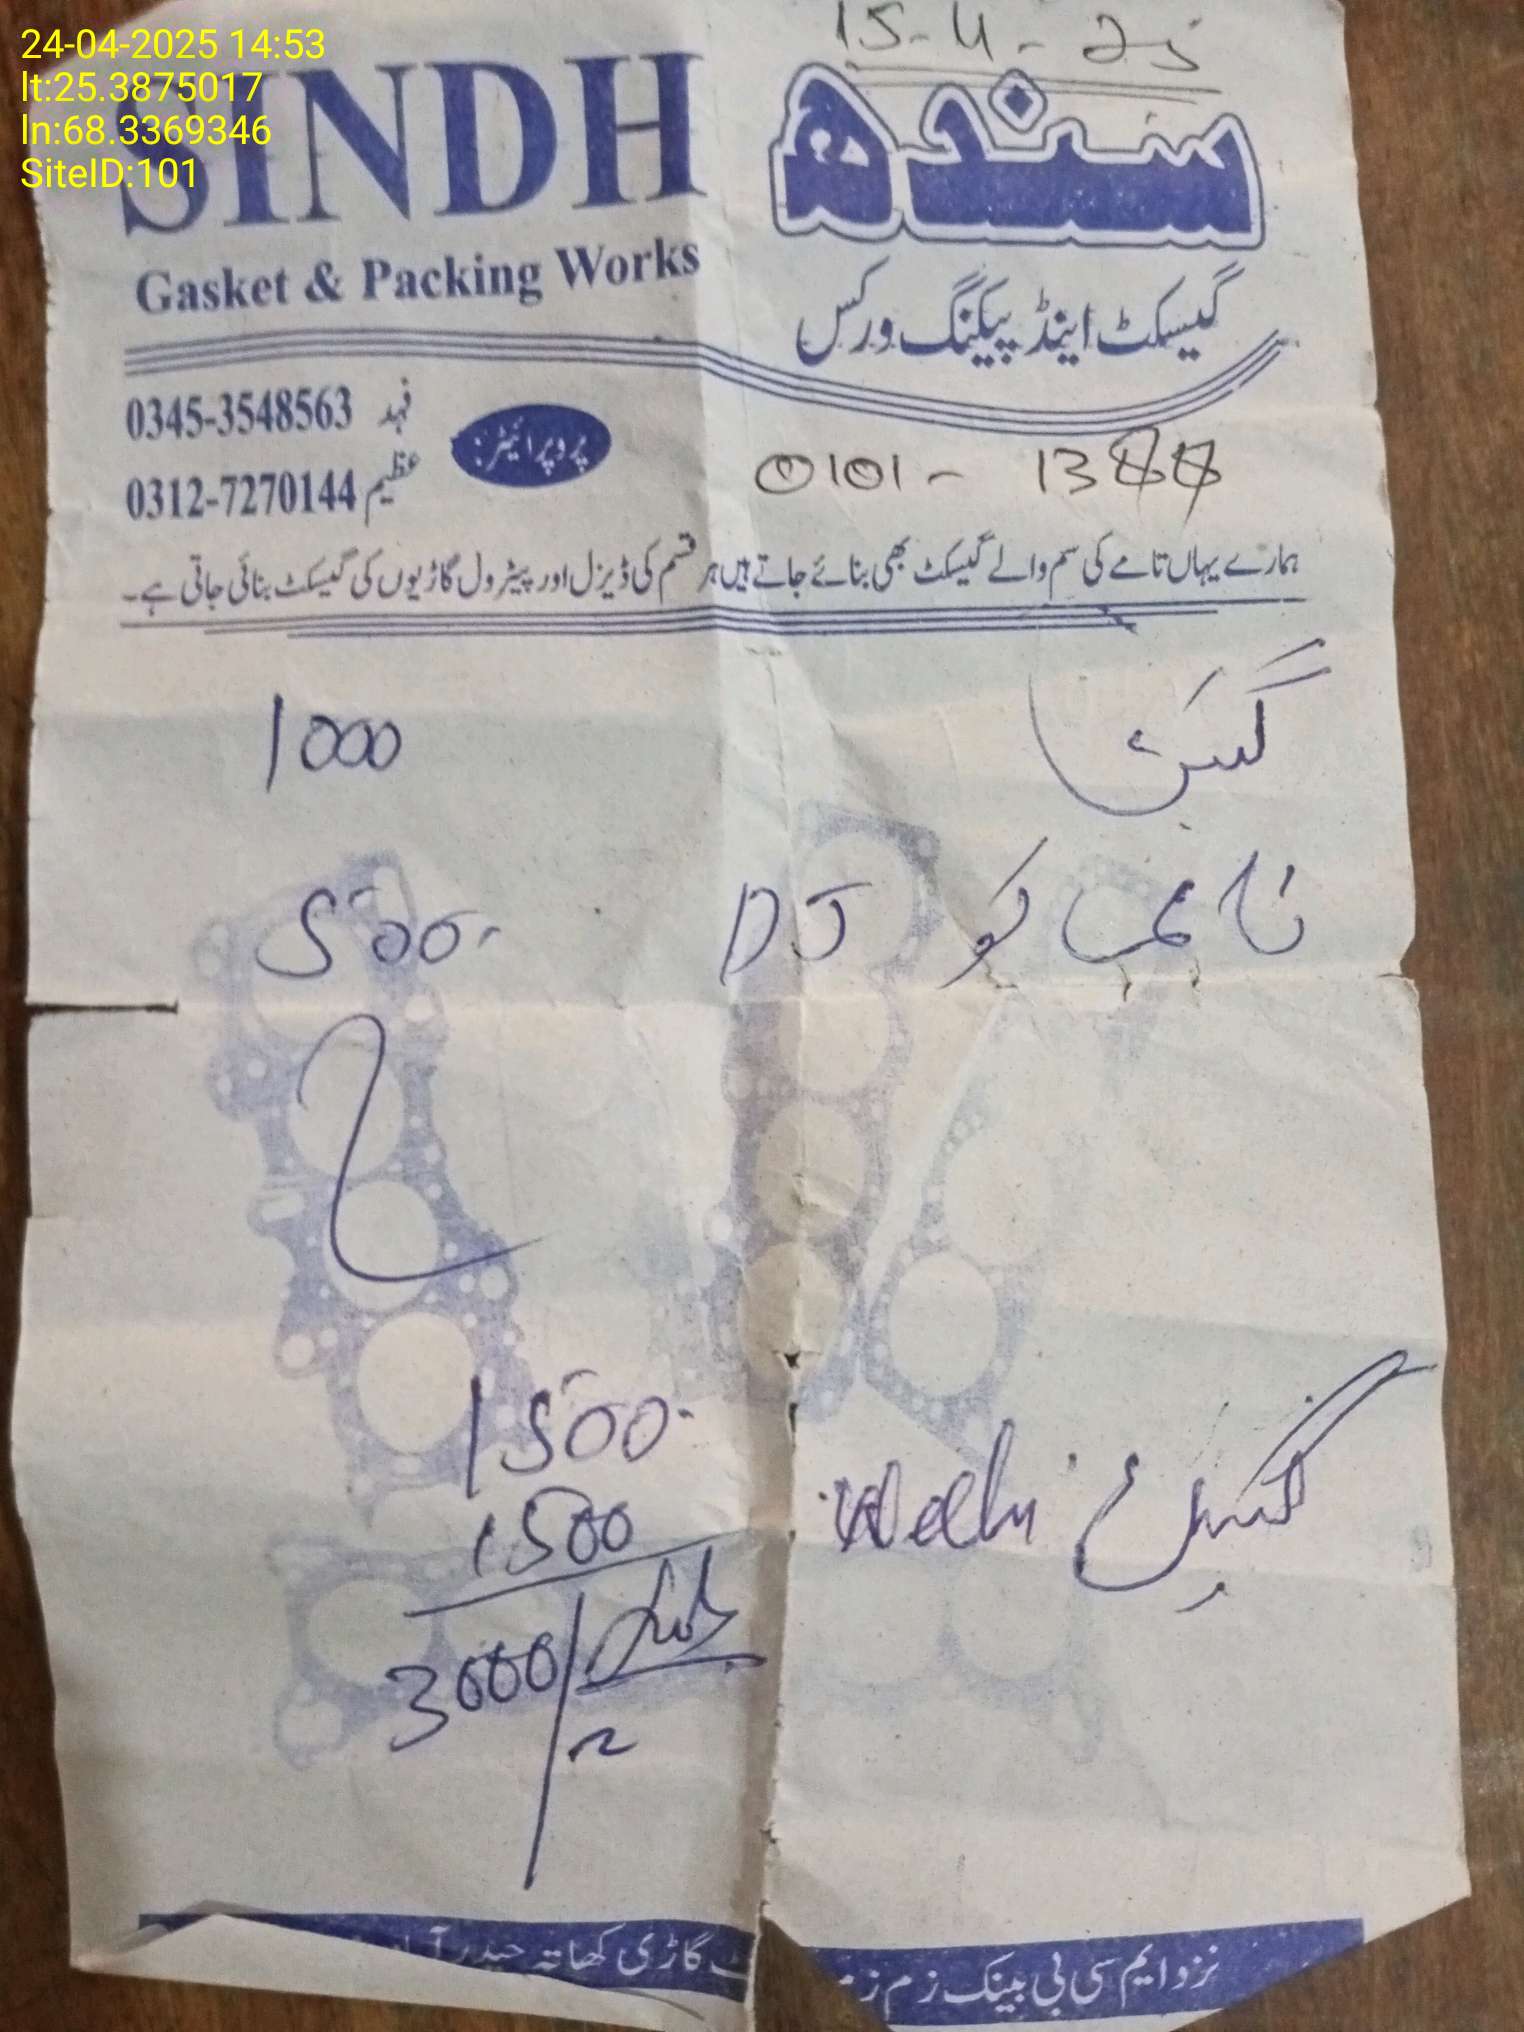 24-04-2025 14:53
lt:25.3875017
ln:68.3369346
SiteID:101
15-4-25
SINDH
سندھ
Gasket & Packing Works
گیسکٹ اینڈ پیکنگ ورکس
0345-3548563 فہد
پروپرائیٹر:
0312-7270144 عظیم
0101-1388
ہمارے یہاں تامے کی سم والے گیسکٹ بھی بنائے جاتے ہیں ہر قسم کی ڈیزل اور پیٹرول گاڑیوں کی گیسکٹ بنائی جاتی ہے۔
1000
500
1500
1500
3000/
نزد ایم سی بی بینک زم زم
گاڑی کھاتہ حیدر آباد